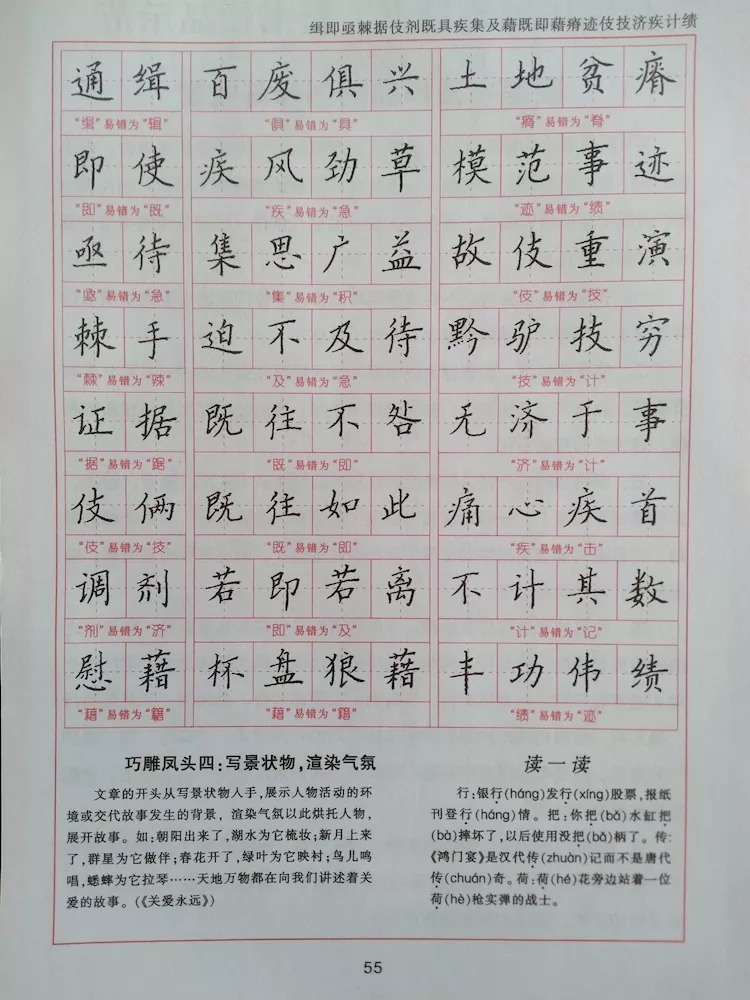 缉即亟棘据伎剂既具疾集及藉既即藉瘠迹伎技济疾计绩
通缉 百废俱兴 土地贫瘠
“缉”易错为“辑” “俱”易错为“具” “瘠”易错为“脊”
即使 疾风劲草 模范事迹
“即”易错为“既” “疾”易错为“急” “迹”易错为“绩”
亟待 集思广益 故伎重演
“亟”易错为“急” “集”易错为“积” “伎”易错为“技”
棘手 迫不及待 黔驴技穷
“棘”易错为“辣” “及”易错为“急” “技”易错为“计”
证据 既往不咎 无济于事
“据”易错为“踞” “既”易错为“即” “济”易错为“计”
伎俩 既往如此 痛心疾首
“伎”易错为“技” “既”易错为“即” “疾”易错为“击”
调剂 若即若离 不计其数
“剂”易错为“济” “即”易错为“及” “计”易错为“记”
慰藉 杯盘狼藉 丰功伟绩
“藉”易错为“籍” “藉”易错为“籍” “绩”易错为“迹”
巧雕凤头四:写景状物,渲染气氛
文章的开头从写景状物入手,展示人物活动的环
境或交代故事发生的背景,渲染气氛以此烘托人物,
展开故事。如:朝阳出来了,湖水为它梳妆;新月上来
了,群星为它做伴;春花开了,绿叶为它映衬;鸟儿鸣
唱,蟋蟀为它拉琴……天地万物都在向我们讲述着关
爱的故事。(《关爱永远》)
读一读
行:银行(háng)发行(xíng)股票,报纸
刊登行(háng)情。把:你把(bǎ)水缸把
(bà)摔坏了,以后使用没把(bǎ)柄了。传:
《鸿门宴》是汉代传(zhuàn)记而不是唐代
传(chuán)奇。荷:荷(hé)花旁边站着一位
荷(hè)枪实弹的战士。
55